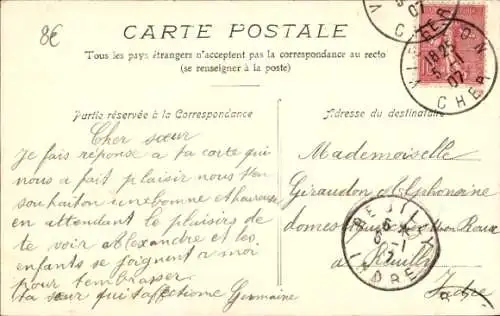 8€
CARTE POSTALE
Tous les pays étrangers n'acceptent pas la correspondance au recto
(se renseigner à la poste)
VIERZON
18 25
5 -1
07
CHER
Partie réservée à la Correspondance
Cher sœur
Je fais réponse a ta carte qui
nous a fait plaisir nous t'en
souhaiton une bonne et heureuse
en attendant le plaisirs de
te voir Alexandre et les
enfants se joignent a moi
pour tembrasser
ta sœur qui t'affectionne Germaine
Adresse du destinataire
Mademoiselle
Giraudon Alphonsine
domestique chez Mr Roux
a Reuilly
Indre
REUILLY
6
6 -1
07
INDRE